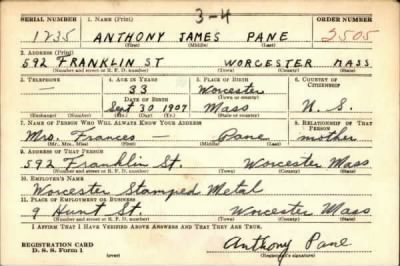 3-4
SERIAL NUMBER 1. NAME (Print) ORDER NUMBER
1235 ANTHONY JAMES PANE 3505
(First) (Middle) (Last)
2. ADDRESS (Print)
592 FRANKLIN ST WORCESTER MASS
(Number and street or R. F. D. number) (Town) (County) (State)
3. TELEPHONE 4. AGE IN YEARS 5. PLACE OF BIRTH 6. COUNTRY OF CITIZENSHIP
— 33 Worcester
DATE OF BIRTH (Town or county)
Sept 30 1907 Mass U. S.
(Exchange) (Number) (Mo.) (Day) (Yr.) (State or country)
7. NAME OF PERSON WHO WILL ALWAYS KNOW YOUR ADDRESS 8. RELATIONSHIP OF THAT PERSON
Mrs. Frances Pane mother
(Mr., Mrs., Miss) (First) (Middle) (Last)
9. ADDRESS OF THAT PERSON
592 Franklin St. Worcester Mass
(Number and street or R. F. D. number) (Town) (County) (State)
10. EMPLOYER'S NAME
Worcester Stamped Metal
11. PLACE OF EMPLOYMENT OR BUSINESS
9 Hunt St. Worcester Mass
(Number and street or R. F. D. number) (Town) (County) (State)
I AFFIRM THAT I HAVE VERIFIED ABOVE ANSWERS AND THAT THEY ARE TRUE.
REGISTRATION CARD
D. S. S. Form 1 (over) Anthony Pane
(Registrant's signature)